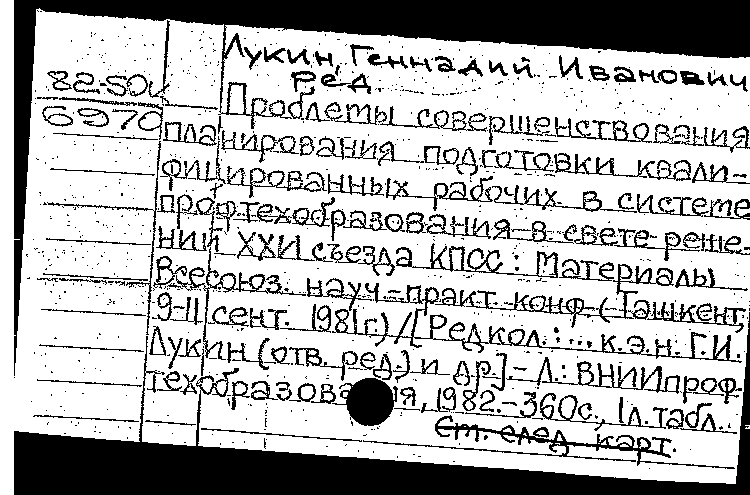 Лукин, Геннадий Иванович
ред.
82-50к
6970
Проблемы совершенствования
планирования подготовки квали-
фицированных рабочих в системе
профтехобразования в свете реше-
ний XXVI съезда КПСС: Материалы
Всесоюз. науч.-практ. конф. (Ташкент,
9-11 сент. 1981г.) / [Редкол.:... к.э.н. Г.И.
Лукин (отв. ред.) и др.].- Л.: ВНИИпроф-
техобразования, 1982.-360с., 1л.табл.
См. след. карт.